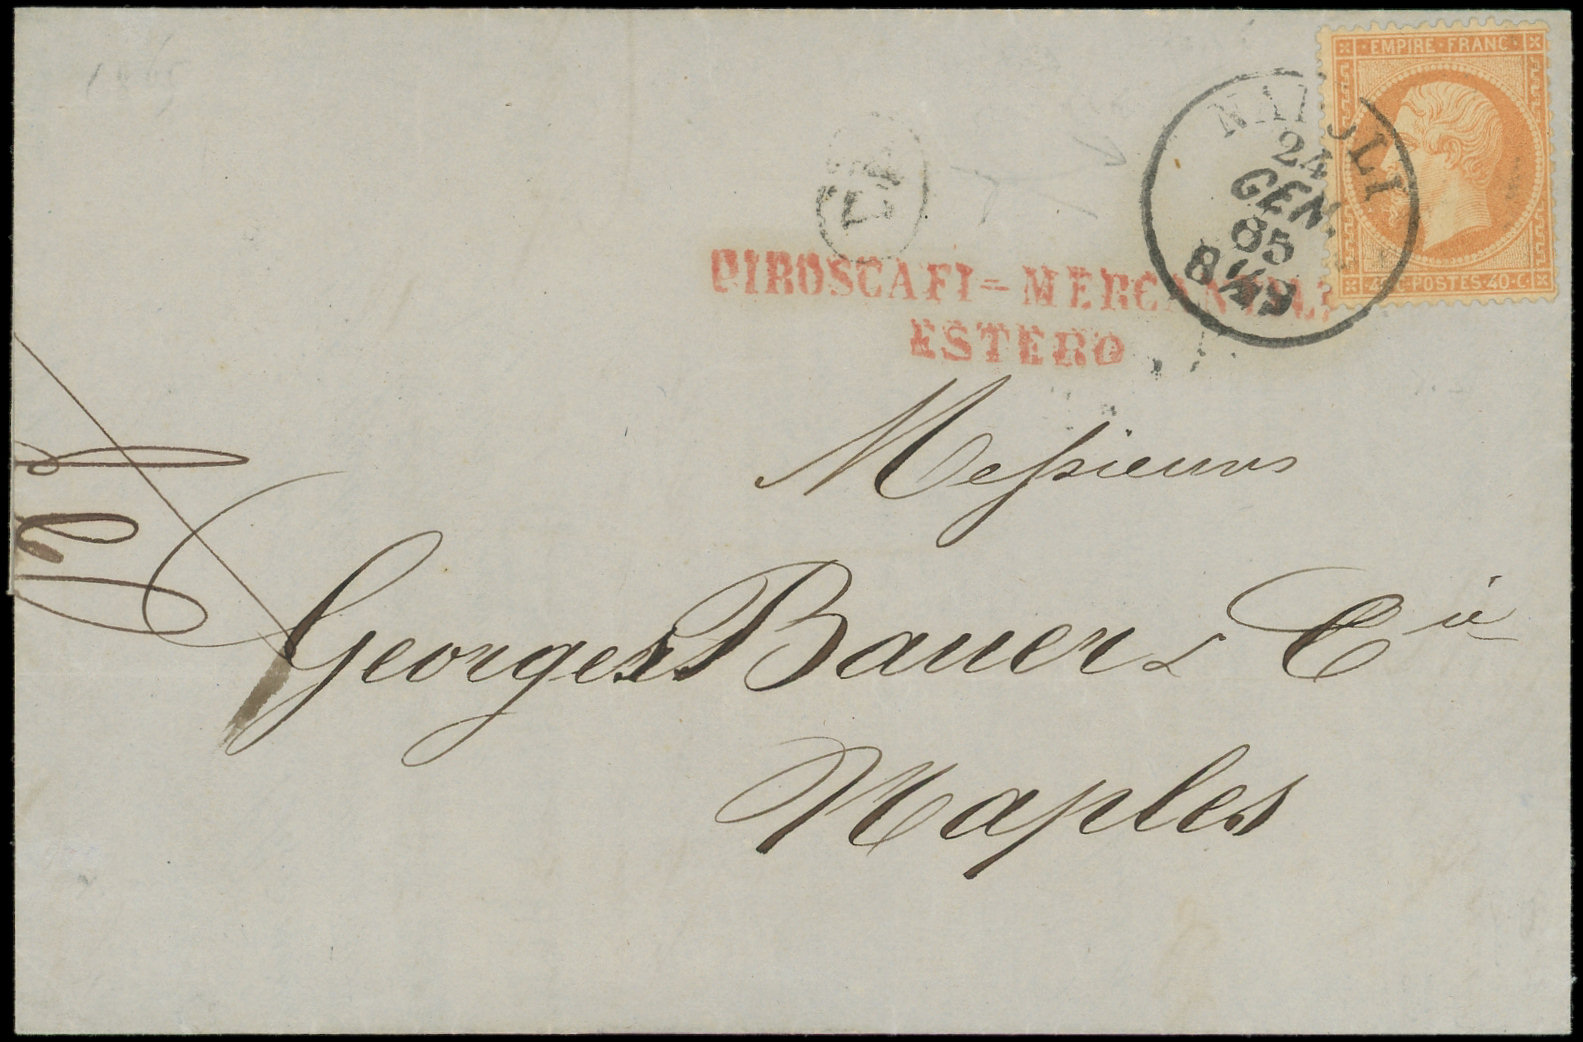 1865
EMPIRE FRANC
NAPOLI
24
GEN.
65
PIROSCAFI=MERCANTILI
ESTERO
40 C POSTES 40 C
Messieurs
Georges Bauer & Cie
Naples